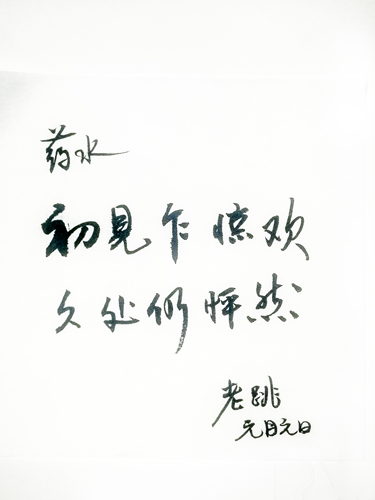 药水
初見乍惊欢
久处仍怦然
老跳
元月元日